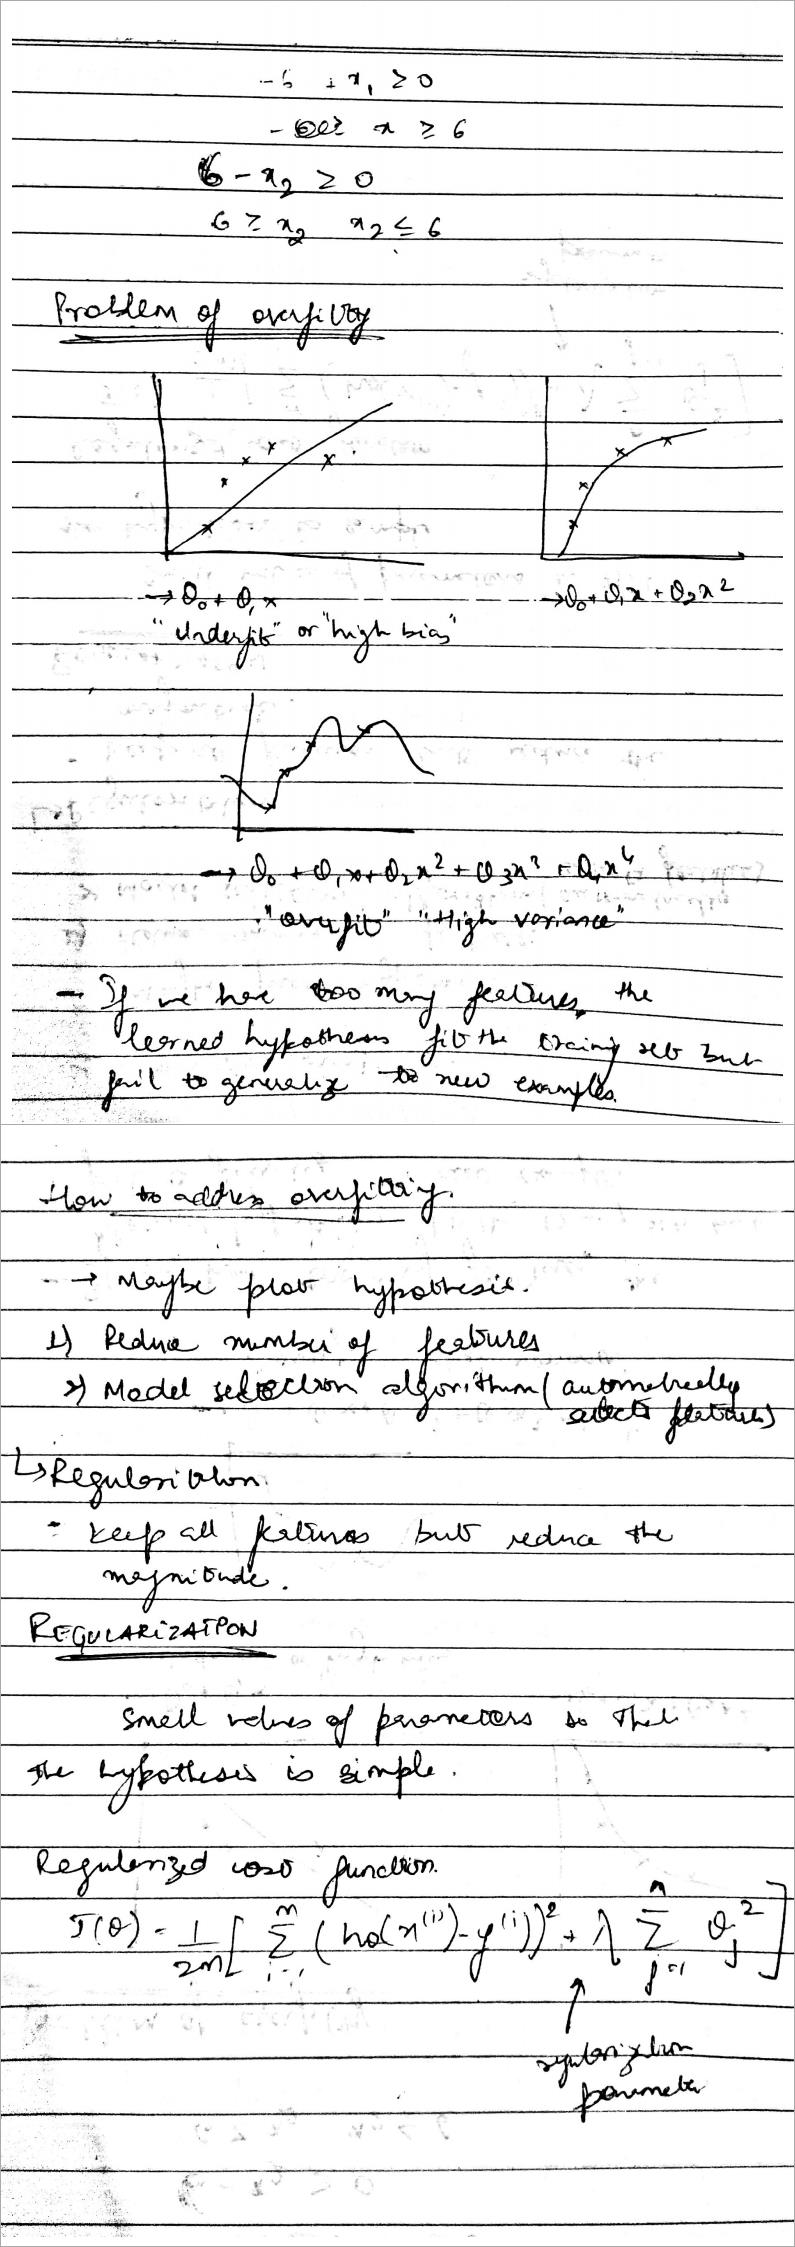 -6 + x₁ ≥ 0
x ≥ 6
6 - x₂ ≥ 0
6 ≥ x₂   x₂ ≤ 6
Problem of overfitting
→ θ₀ + θ₁x
→ θ₀ + θ₁x + θ₂x²
"Underfit" or "high bias"
→ θ₀ + θ₁x + θ₂x² + θ₃x³ + θ₄x⁴
"overfit" "High variance"
- If we have too many features, the
learned hypothesis fit the training set but
fail to generalize to new examples.
How to address overfitting.
→ Maybe plot hypothesis.
1) Reduce number of features
2) Model selection algorithm (automatically
selects features)
↳ Regularization
- Keep all features but reduce the
magnitude.
REGULARIZATION
Small values of parameters so that
the hypothesis is simple.
Regularized cost function.
J(θ) = 1/2m [ Σᵢ₌₁ᵐ (hθ(x⁽ⁱ⁾) - y⁽ⁱ⁾)² + λ Σⱼ₌₁ⁿ θⱼ² ]
↑
regularization
parameter